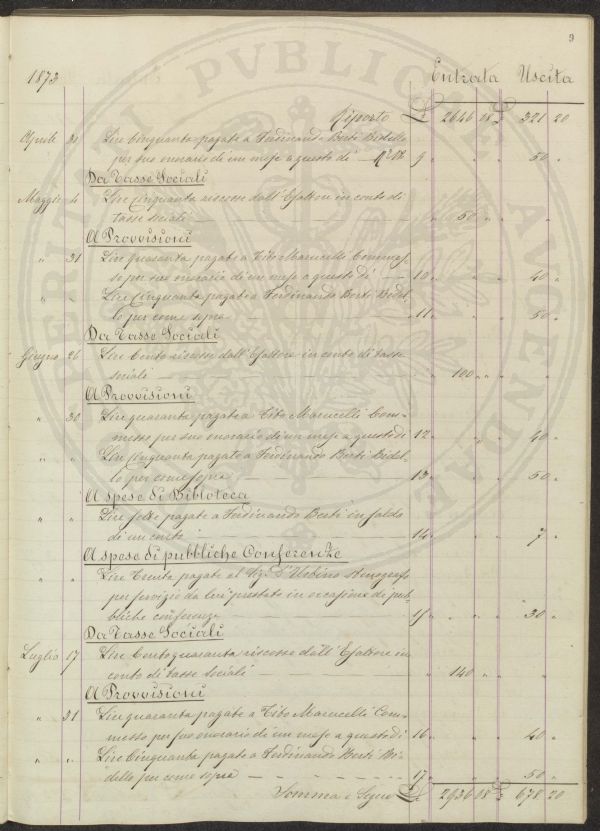 9
1873 Entrata Uscita
Riporto £ 2646 08 £ 321 20
Aprile 31 Lire Cinquanta pagate a Ferdinando Berti Bidello
per suo onorario di un mese a questo dì — N° 9 " " " 50 "
Da Tasse Sociali
Maggio 4 Lire Cinquanta riscosse dall'Esattore in conto di
tasse sociali " 50 " " " "
A Provvisioni
" 31 Lire quaranta pagate a Tito Marucelli Commes-
so per suo onorario di un mese a questo dì — 10 " " " 40 "
" " Lire Cinquanta pagate a Ferdinando Berti Bidel-
lo per come sopra — 11 " " " 50 "
Da Tasse Sociali
Giugno 26 Lire Cento riscosse dall'Esattore in conto di tasse
sociali " 100 " " " "
A Provvisioni
" 30 Lire quaranta pagate a Tito Marucelli Com-
messo per suo onorario di un mese a questo dì 12 " " " 40 "
Lire Cinquanta pagate a Ferdinando Berti Bidel-
lo per come sopra — 13 " " " 50 "
A spese di Biblioteca
" " Lire sette pagate a Ferdinando Berti in saldo
di un conto — 14 " " " 7 "
A spese di pubbliche Conferenze
" " Lire Trenta pagate al Sig. D'Urbino Stenografo
per servizio da lui prestato in occasione di pub-
bliche conferenze — 15 " " " 30 "
Da Tasse Sociali
Luglio 17 Lire Centoquaranta riscosse dall'Esattore in
conto di tasse sociali — " 140 " " " "
A Provvisioni
" 31 Lire quaranta pagate a Tito Marucelli Com-
messo per suo onorario di un mese a questo dì 16 " " " 40 "
" " Lire Cinquanta pagate a Ferdinando Berti Bi-
dello per come sopra — 17 " " " 50 "
Somma e Segue £ 2936 08 £ 678 20